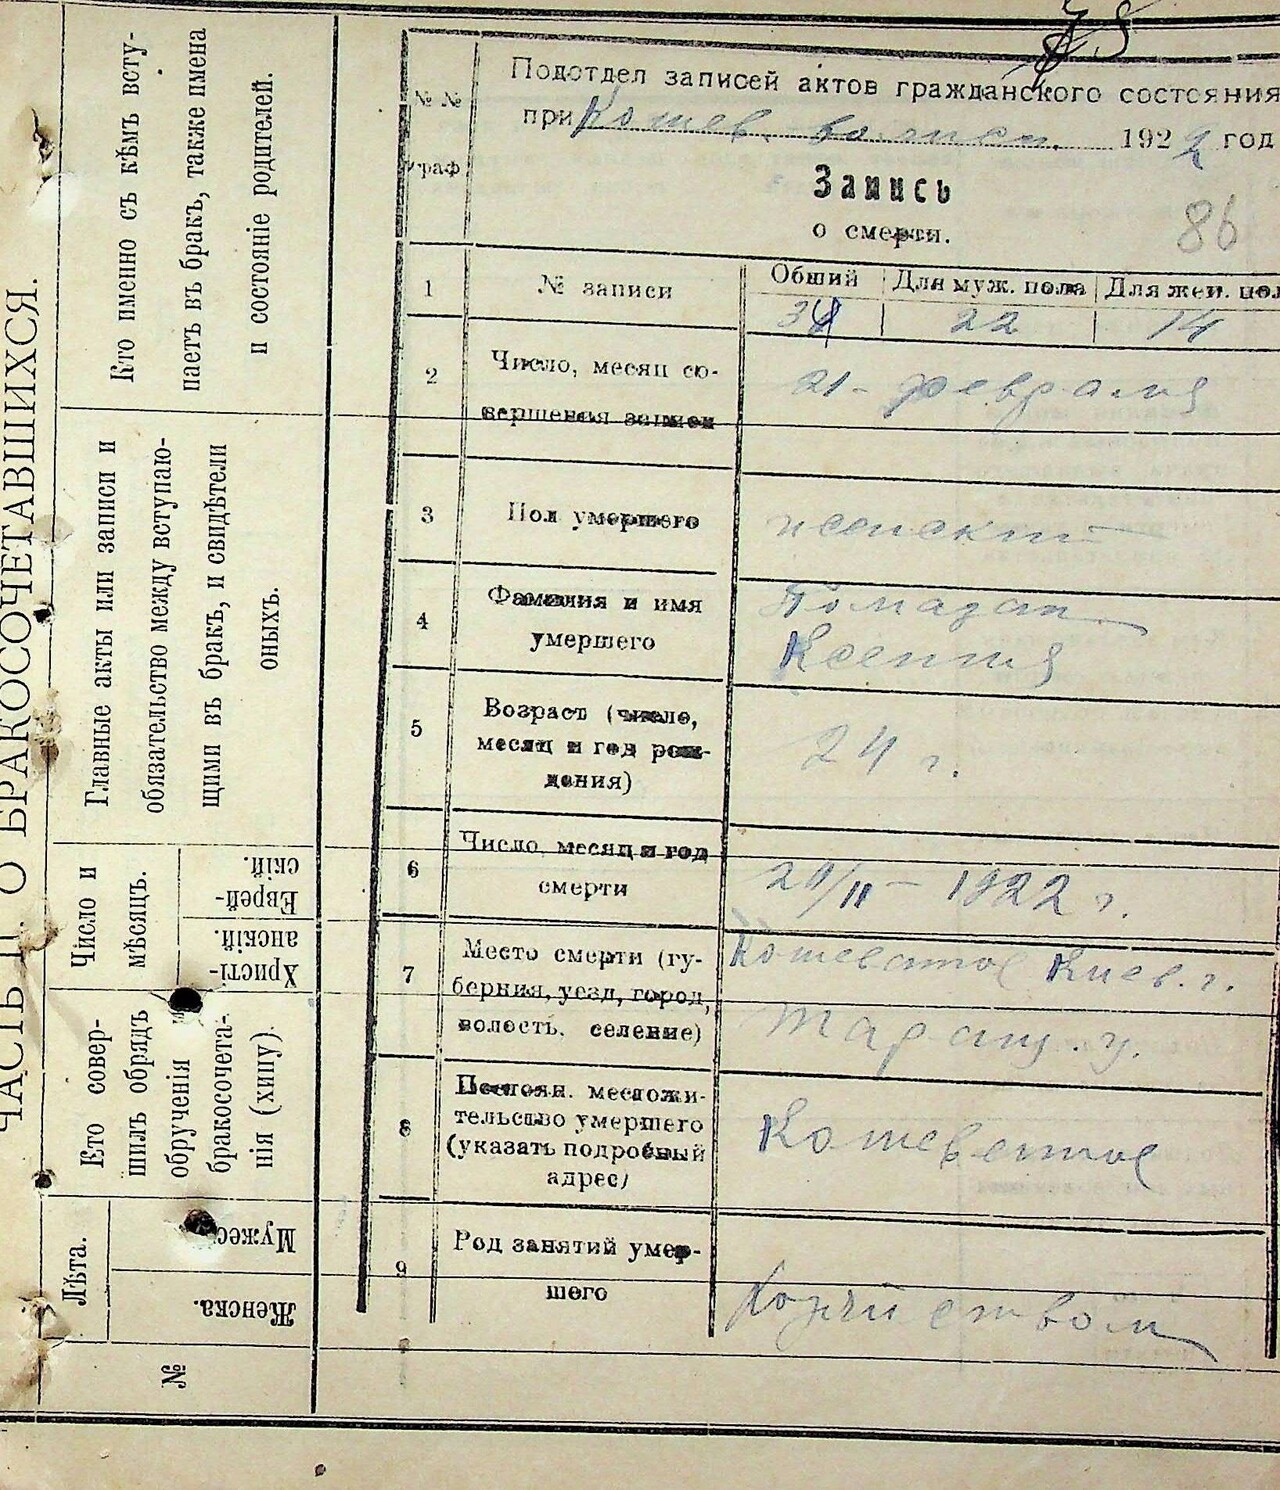 ЧАСТЬ II. О БРАКОСОЧЕТАВШИХСЯ.
Кто именно съ кѣмъ всту-
паетъ въ бракъ, также имена
и состояніе родителей.
Главные акты или записи и
обязательство между вступаю-
щими въ бракъ, и свидѣтели
оныхъ.
Число и
мѣсяцъ.
Еврей-
скій.
Христі-
анскій.
Кто совер-
шилъ обрядъ
обрученія и
бракосочета-
нія (хипу)
Лѣта.
Мужес.
Женска.
№
№ №
граф
Подотдел записей актов гражданского состояния
при Кошев. волисп. 1922 год
Запись
о смерти.
86
1
№ записи
Обший
Для муж. пола
Для жен. пол
22
14
2
Число, месяц со-
вершения записи
21 - февраля
3
Пол умершего
женский
4
Фамилия и имя
умершего
Ксения
5
Возраст (число,
месяц и год рож-
дения)
24 г.
6
Число, месяц и год
смерти
20/II - 1922 г.
7
Место смерти (гу-
берния, уезд, город,
волость, селение)
Кошеватое Киев. г.
Таращ. у.
8
Постоян. местожи-
тельство умершего
(указать подробный
адрес)
Кошеватое
9
Род занятий умер-
шего